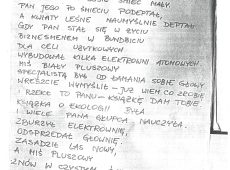 ŚMIEĆ MAŁY
PAN JEGO PO ŚMIECIU PODEPTAŁ,
A KWIATY LEŚNE NAUMYŚLNIE DEPTAŁ
GDY PAN STAŁ SIĘ W ŻYCIU
BIZNESMENEM W
DLA CELI UŻYTKOWYCH
WYBUDOWAŁ KILKA ELEKTROWNI ATOMOWYCH.
MIŚ BIAŁY PLUSZOWY
SPECJALISTĄ BYŁ OD ŁAMANIA SOBIE GŁOWY
WRESZCIE WYMYŚLIŁ - JUŻ WIEM CO ZROBIĘ
RZEKŁ TO PANU - KSIĄŻKĘ DAM TOBIE.
KSIĄŻKA O EKOLOGII BYŁA
I WIELE PANA GŁUPCA NAUCZYŁA
ZBURZYŁ ELEKTROWNIE,
ODSPRZEDAŁ GŁOWNIE,
ZASADZIŁ LAS NOWY
A MIŚ PLUSZOWY
ZNÓW W CZYSTYM